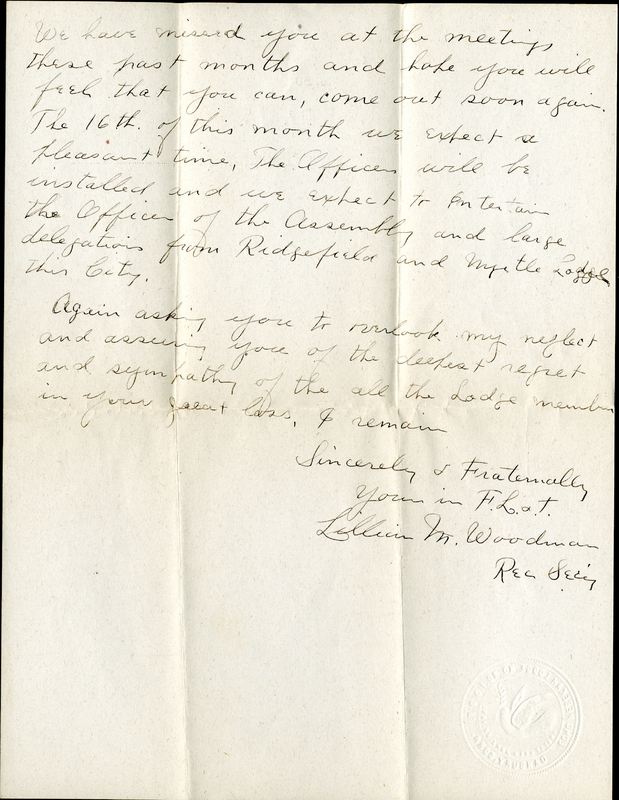 We have missed you at the meetings
these past months and hope you will
feel that you can, come out soon again.
The 16th. of this month we expect a
pleasant time, The Officers will be
installed and we expect to entertain
the Officers of the Assembly and large
delegations from Ridgefield and Myrtle Lodge
this City.
Again asking you to overlook my neglect
and assuring you of the deepest regret
and sympathy of the all the Lodge members
in your great loss, I remain
Sincerely & Fraternally
Yours in F.L.&T.
Lillian M. Woodman
Rec Sec'y